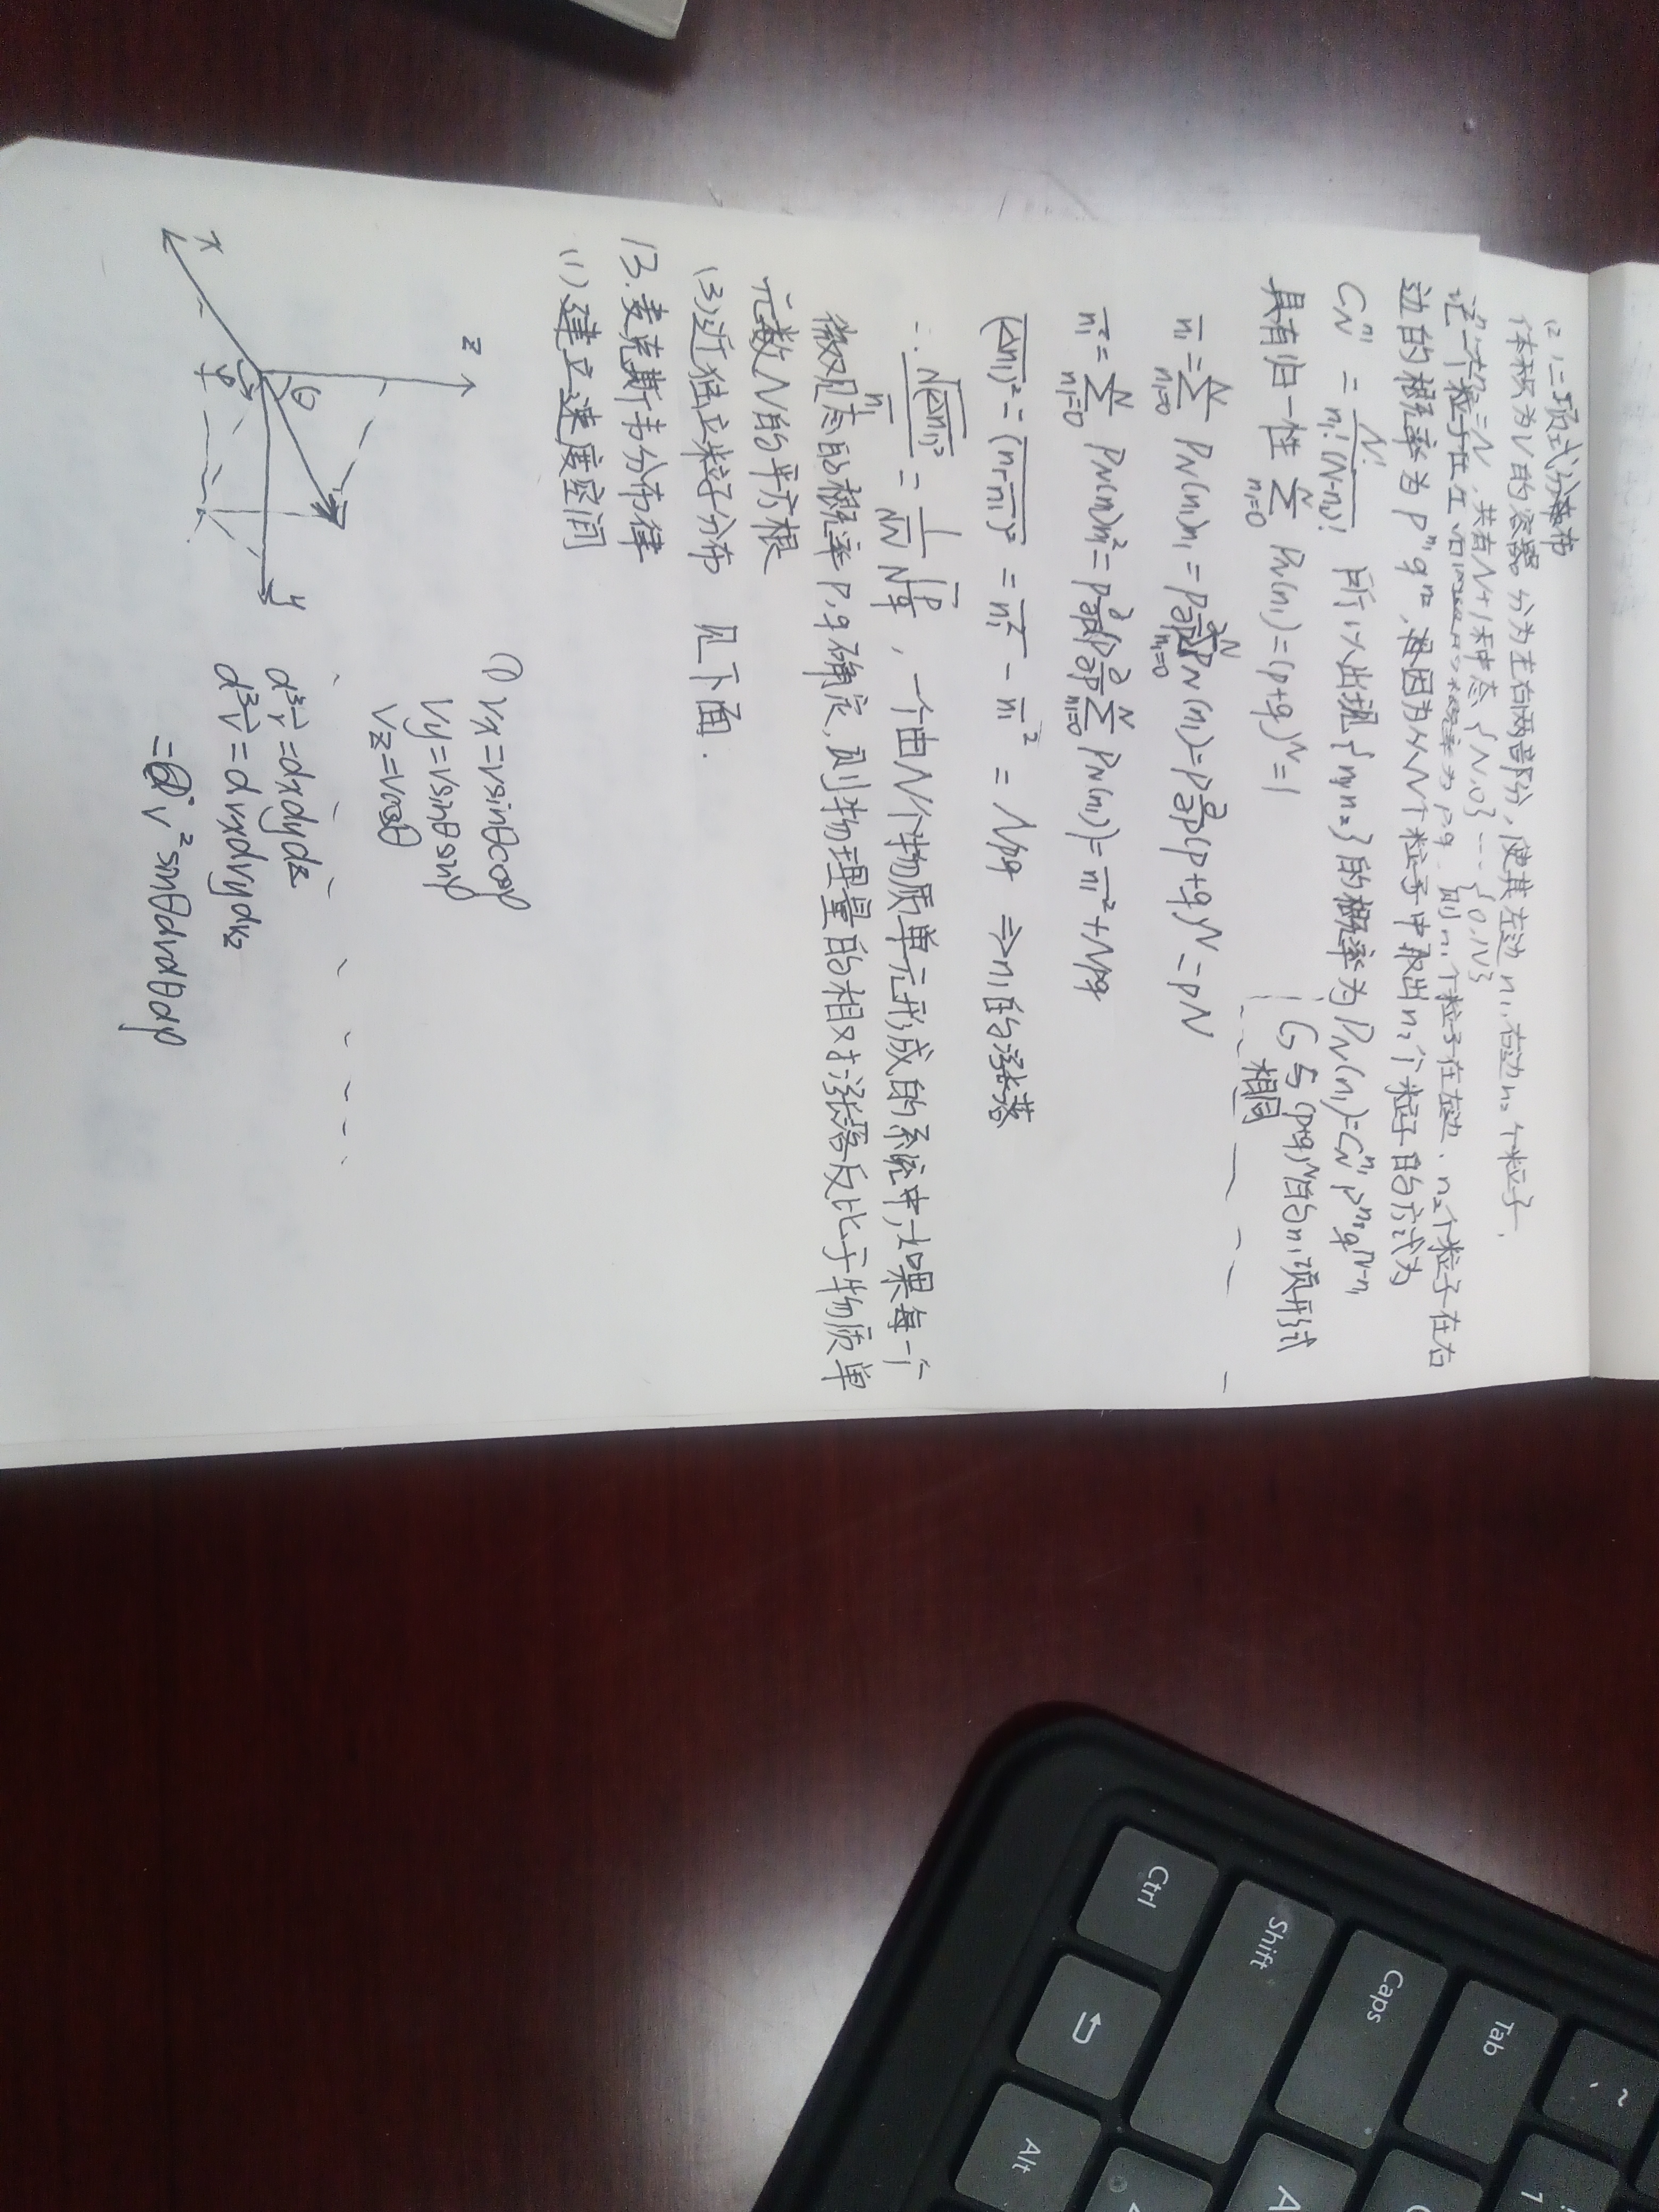 (2) 二项式分布
体积为V的容器分为左右两部分,使其左边n₁,右边n₂个粒子,
n₁+n₂=N,共有N+1种态{N,0}…{0,N}
记一个粒子在左右 概率为p,q,则n₁个粒子在左边、n₂个粒子在右
边的概率为p^n₁ q^n₂,再因为从N个粒子中取出n₁个粒子的方式为
C_N^n₁ = N!/(n₁!(N-n₁)!) 所以出现{n₁,n₂}的概率为P_N(n₁)=C_N^n₁ p^n₁ q^(N-n₁)
具有归一性 Σ_(n₁=0)^N P_N(n₁)=(p+q)^N=1
↳与(p+q)^N的n₁项形式
相同
n̄₁=Σ_(n₁=0)^N P_N(n₁)n₁=p ∂/∂p Σ_(n₁=0)^N P_N(n₁)=p ∂/∂p (p+q)^N=pN
n̄₁²=Σ_(n₁=0)^N P_N(n₁)n₁²=p ∂/∂p (p ∂/∂p Σ_(n₁=0)^N P_N(n₁))=n̄₁²+Npq
(Δn₁)²=(n₁-n̄₁)²=n₁²-n̄₁²=Npq ⇒n₁的涨落
∴ √(Δn₁)²/n̄₁ = 1/√N √(q/p) ,一个由N个物质单元形成的系统中,如果每一个
微观态的概率p,q确定,则物理量的相对涨落反比于物质单
元数N的平方根
(3)近独立粒子分布 见下面.
13.麦克斯韦分布律
(1)建立速度空间
z
θ
y
x
φ
① Vx=vsinθcosφ
Vy=vsinθsinφ
Vz=vcosθ
d³r=dxdydz
d³v=dvxdvydvz
=v²sinθdvdθdφ
Ctrl
Shift
Caps
Tab
Alt
A
~
1